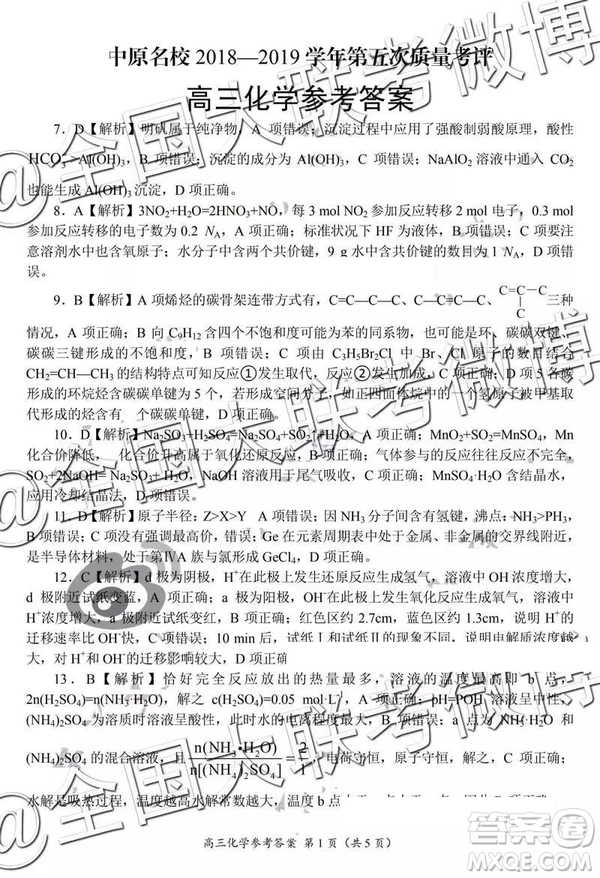 中原名校 2018—2019 学年第五次质量考评
高三化学参考答案
7．D【解析】明矾属于纯净物，A 项错误；沉淀过程中应用了强酸制弱酸原理，酸性
HCO₃⁻>Al(OH)₃，B 项错误；沉淀的成分为 Al(OH)₃，C 项错误；NaAlO₂ 溶液中通入 CO₂
也能生成 Al(OH)₃沉淀，D 项正确。
8．A【解析】3NO₂+H₂O=2HNO₃+NO，每 3 mol NO₂ 参加反应转移 2 mol 电子，0.3 mol
参加反应转移的电子数为 0.2 Nₐ，A 项正确；标准状况下 HF 为液体，B 项错误；C 项要注
意溶剂水中也含氧原子；水分子中含两个共价键，9 g 水中含共价键的数目为 1 Nₐ，D 项错
误。
9．B【解析】A 项烯烃的碳骨架连带方式有，C=C—C—C、C—C=C—C、C=C—C C 三种
情况，A 项正确；B 向 C₉H₁₂含四个不饱和度可能为苯的同系物，也可能是环、碳碳双键、
碳碳三键形成的不饱和度，B 项错误；C 项由 C₃H₅Br₂Cl 中 Br、Cl 原子的位置及
CH₂=CH—CH₃的结构特点可知反应①发生取代，反应②发生加成，C 项正确；D 项 5 名碳
形成的环烷烃含碳碳单键为 5 个，若形成空间分子，如正四面体烷中的一个氢原子被甲基取
代形成的烃含有 个碳碳单键，D项正确。
10．D【解析】Na₂SO₃+H₂SO₄=Na₂SO₄+SO₂↑+H₂O，A 项正确；MnO₂+SO₂=MnSO₄，Mn
化合价降低， 化合价升高属于氧化还原反应，B 项正确；气体参与的反应往往存在尾气处理，
SO₂+2NaOH= Na₂SO₃+ H₂O，NaOH 溶液用于尾气吸收，C 项正确；MnSO₄·H₂O 含结晶水，
应用冷却结晶法，D 项错误。
11．D【解析】原子半径：Z>X>Y A 项错误；因 NH₃分子间含有氢键，沸点：NH₃>
B 项错误；C 项没有强调最高价，错误；Ge 在元素周期表中处于金属、非金属的交界线附近，
是半导体材料，处于第ⅣA 族与氯形成 GeCl₄，D 项正确。
12．C【解析】d 极为阴极，H⁺在此极上发生还原反应生成氢气，溶液中 OH⁻浓度增大，
d 极附近试纸变蓝，A 项正确；a 极为阳极，H₂O 在此极上发生氧化反应生成氧气，溶液中
H⁺浓度增大，a 极附近试纸变红，B 项正确；红色区约 2.7cm，蓝色区约 1.3cm，说明 H⁺的
迁移速率比 OH⁻快，C 项错误；10 min 后，试纸Ⅰ和试纸Ⅱ的现象不同，说明电解质浓度
大，对 H⁺和 OH⁻的迁移影响较大，D 项正确
13．B【解析】恰好完全反应放出的热量最多，溶液的温度最高而即 b 点，
2n(H₂SO₄)=n(NH₃·H₂O)，解之 c(H₂SO₄)=0.05 mol·L⁻¹，A 项正确；pH=
(NH₄)₂SO₄为溶质时溶液呈酸性，此时水的电离程度最大，B 项错误；a 点为 NH₃·H₂O 和
(NH₄)₂SO₄的混合溶液，n(NH₃·H₂O)/n[(NH₄)₂SO₄]=2/1，电荷守恒，原子守恒，解之 C 项正确；
水解是吸热过程，温度越高水解常数越大，温度 b 点 D 项正确
高三化学参考答案 第 1 页（共 5 页）
@全国大联考微博
答案圈
MXQE.COM